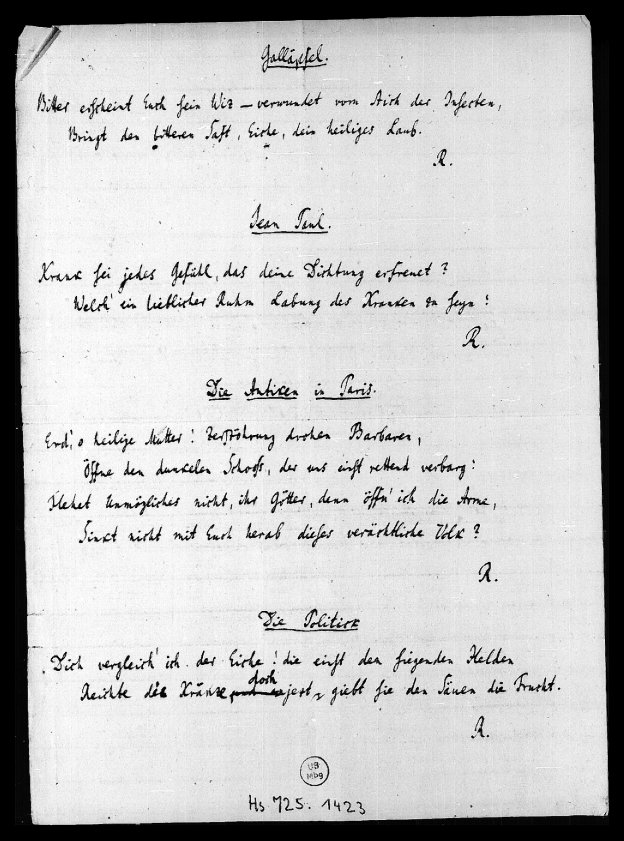 Galläpfel.
Bitter erscheint Euch sein Wiz — verwundet vom Stich der Insecten,
Bringt den bitteren Saft, Eiche, dein heiliges Laub.
R.
Jean Paul.
Krank sei jedes Gefühl, das deine Dichtung erfreuet?
Welch' ein lieblicher Ruhm Labung des Kranken zu seyn!
R.
Die Antiken in Paris.
Erd', o heilige Mutter! Zerstöhrung drohen Barbaren,
Öffne den dunkelen Schooß, der uns einst rettend verbarg!
Flehet Unmögliches nicht, ihr Götter, denn öffn' ich die Arme,
Sinkt nicht mit Euch herab dieses verächtliche Volk?
R.
Die Politick
Dich vergleich' ich der Eiche! die einst den siegenden Helden
Reichte die Kränze, doch jezt, giebt sie den Säuen die Frucht.
R.
UB
Mbg
Hs 725. 1423